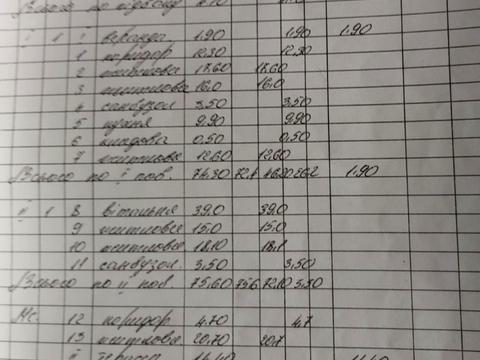 Всього по підвалу
І 1 І веранда 1.90 1.90 1.90
1 коридор 12.30 12.30
2 житлова 17.60 17.60
3 житлова 16.0 16.0
4 санвузол 3.50 3.50
5 кухня 9.90 9.90
6 кладова 0,50 0,50
7 житлова 12.60 12.60
Всього по І пов. 74.30 46.20 26.2 1.90
ІІ 1 8 вітальня 39.0 39.0
9 житлова 15.0 15.0
10 житлова 18.10 18.1
11 санвузол. 3.50 3,50
Всього по ІІ пов. 75.60 75.6 72.10 3.50
Мс. 12 коридор 4.70 4.7
13 житлова 20.70 20.7
ІІ тераса